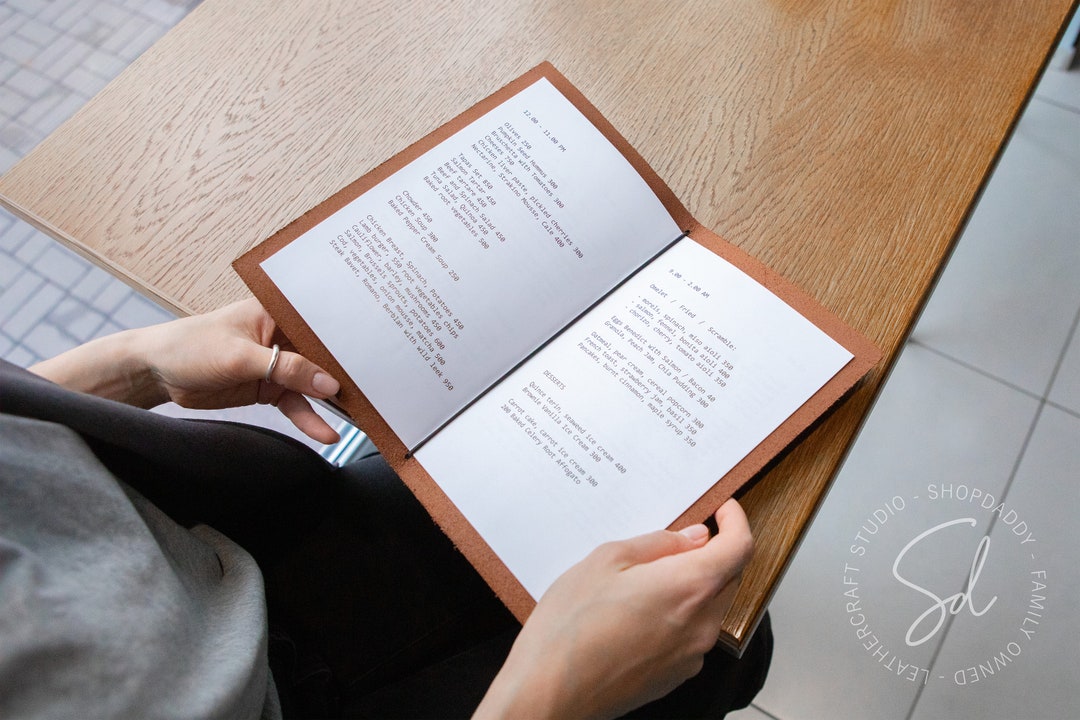 12.00 - 11.00 PM
Olives 250
Pumpkin Seed Hummus 300
Bruschetta with Tomatoes 300
Cheeses 750
Chicken liver paste, pickled cherries 300
Nectarine, Strakino Mousse, Cale 400
Tapas Set 850
Salmon Tartar 450
Beef tartare 450
Beef and Spinach Salad 450
Tuna Salad, Quinoa 450
Baked root vegetables 500
Chowder 450
Chicken Soup 300
Baked Pepper Cream Soup 250
Chicken Breast, Spinach, Potatoes 450
Lamb burger, 550 root vegetables chips
Cauliflower, barley, mushrooms 450
Salmon, Brussels sprouts, potatoes 600
Cod, vegetables, onion mousse, matcha 500
Steak Bavet, Romano, Aerbian with wild leek 950
9.00 - 2.00 AM
Omelet / Fried / Scramble:
. morsls, spinach, miso aioli 350
. salmon, fennel, bonita aioli 350
. chorizo, cherry, tomato aioli 350
Eggs Benedict with Salmon / Bacon 40
Granola, Peach Jam, Chia Pudding 400
Oatmeal, pear cream, cereal popcorn 300
French toast, strawberry jam, basil 350
Pancakes, burnt cinnamon, maple syrup 350
DESSERTS
Quince terin, seaweed ice cream 400
Brownie Vanilla Ice Cream 300
Carrot cake, carrot ice cream 300
200 Baked Celery Root Affogato
SHOPDADDY - FAMILY OWNED - LEATHERCRAFT STUDIO -
Sd